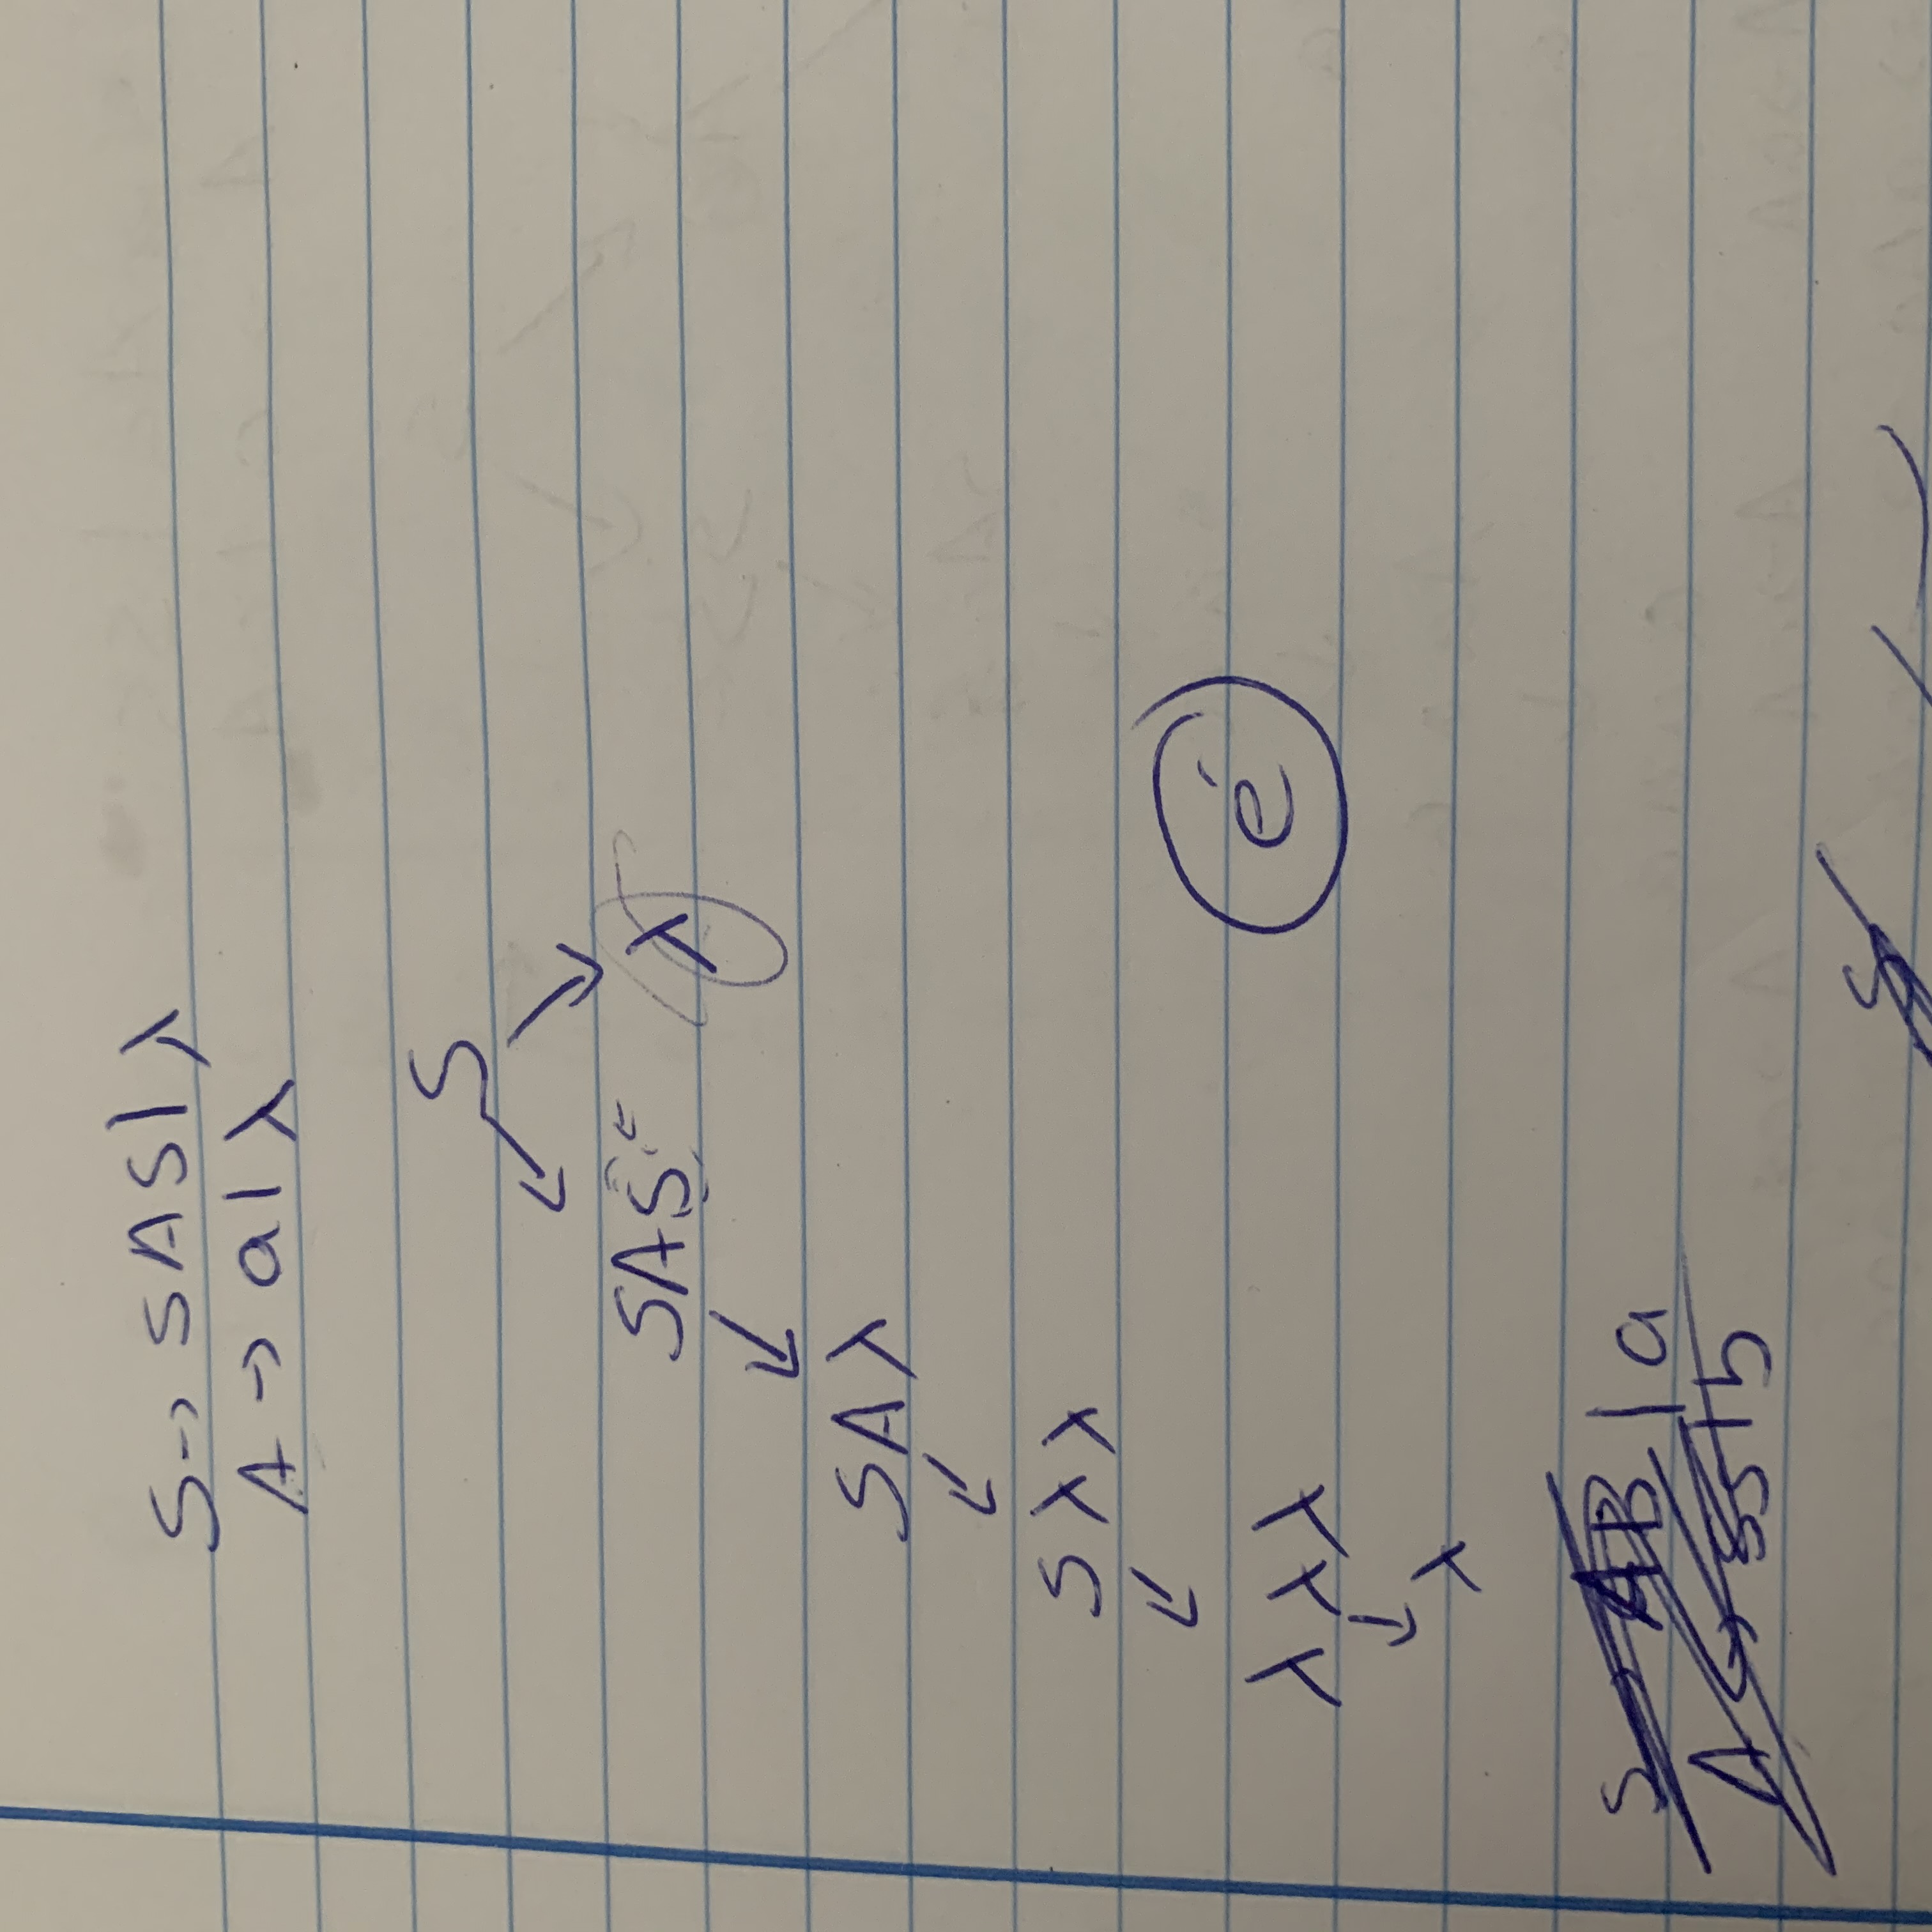 S → SAS | λ
A → a | λ
S
SAS λ
SA λ
S λ λ
λ λ λ
λ
é
S → AB | a
A → SS | b
S